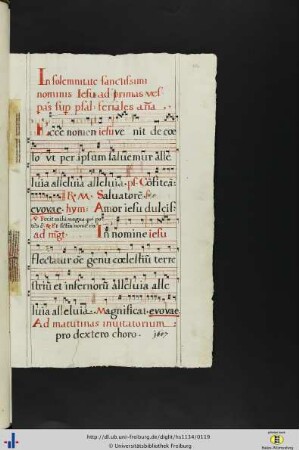 In solemnitate sanctissimi
nominis Iesu ad primas ves
pas sup psal feriales aña
Ecce nomen iesu ve nit de cœ
lo vt per ipsum saluemur alle
luia alleluia alleluia. ps. Cōfiteā:
R. M. Saluatorē.
evovae. hym: Amor iesu dulcis:
ad mgt. In nomine iesu
flectatur oē genu cœlestiū terre
striū et infernorū alleluia alle
luia alleluia. Magnificat. evovae
Ad matutinas inuitatorium
pro dextero choro.
http://dl.ub.uni-freiburg.de/diglit/hs1134/0119
© Universitätsbibliothek Freiburg